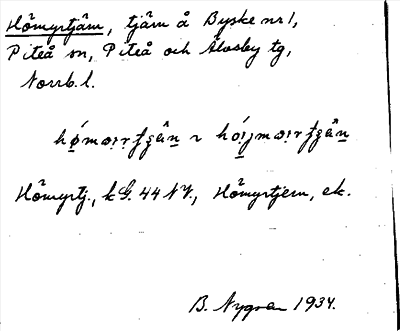 Hömyrtjärn, tjärn å Byske nr 1,
Piteå sn, Piteå och Älvsby tg,
Norrb. l.
Hömyrtj., kG. 44 NV., Hömyrtjern, ek.
B. Nygren 1934.